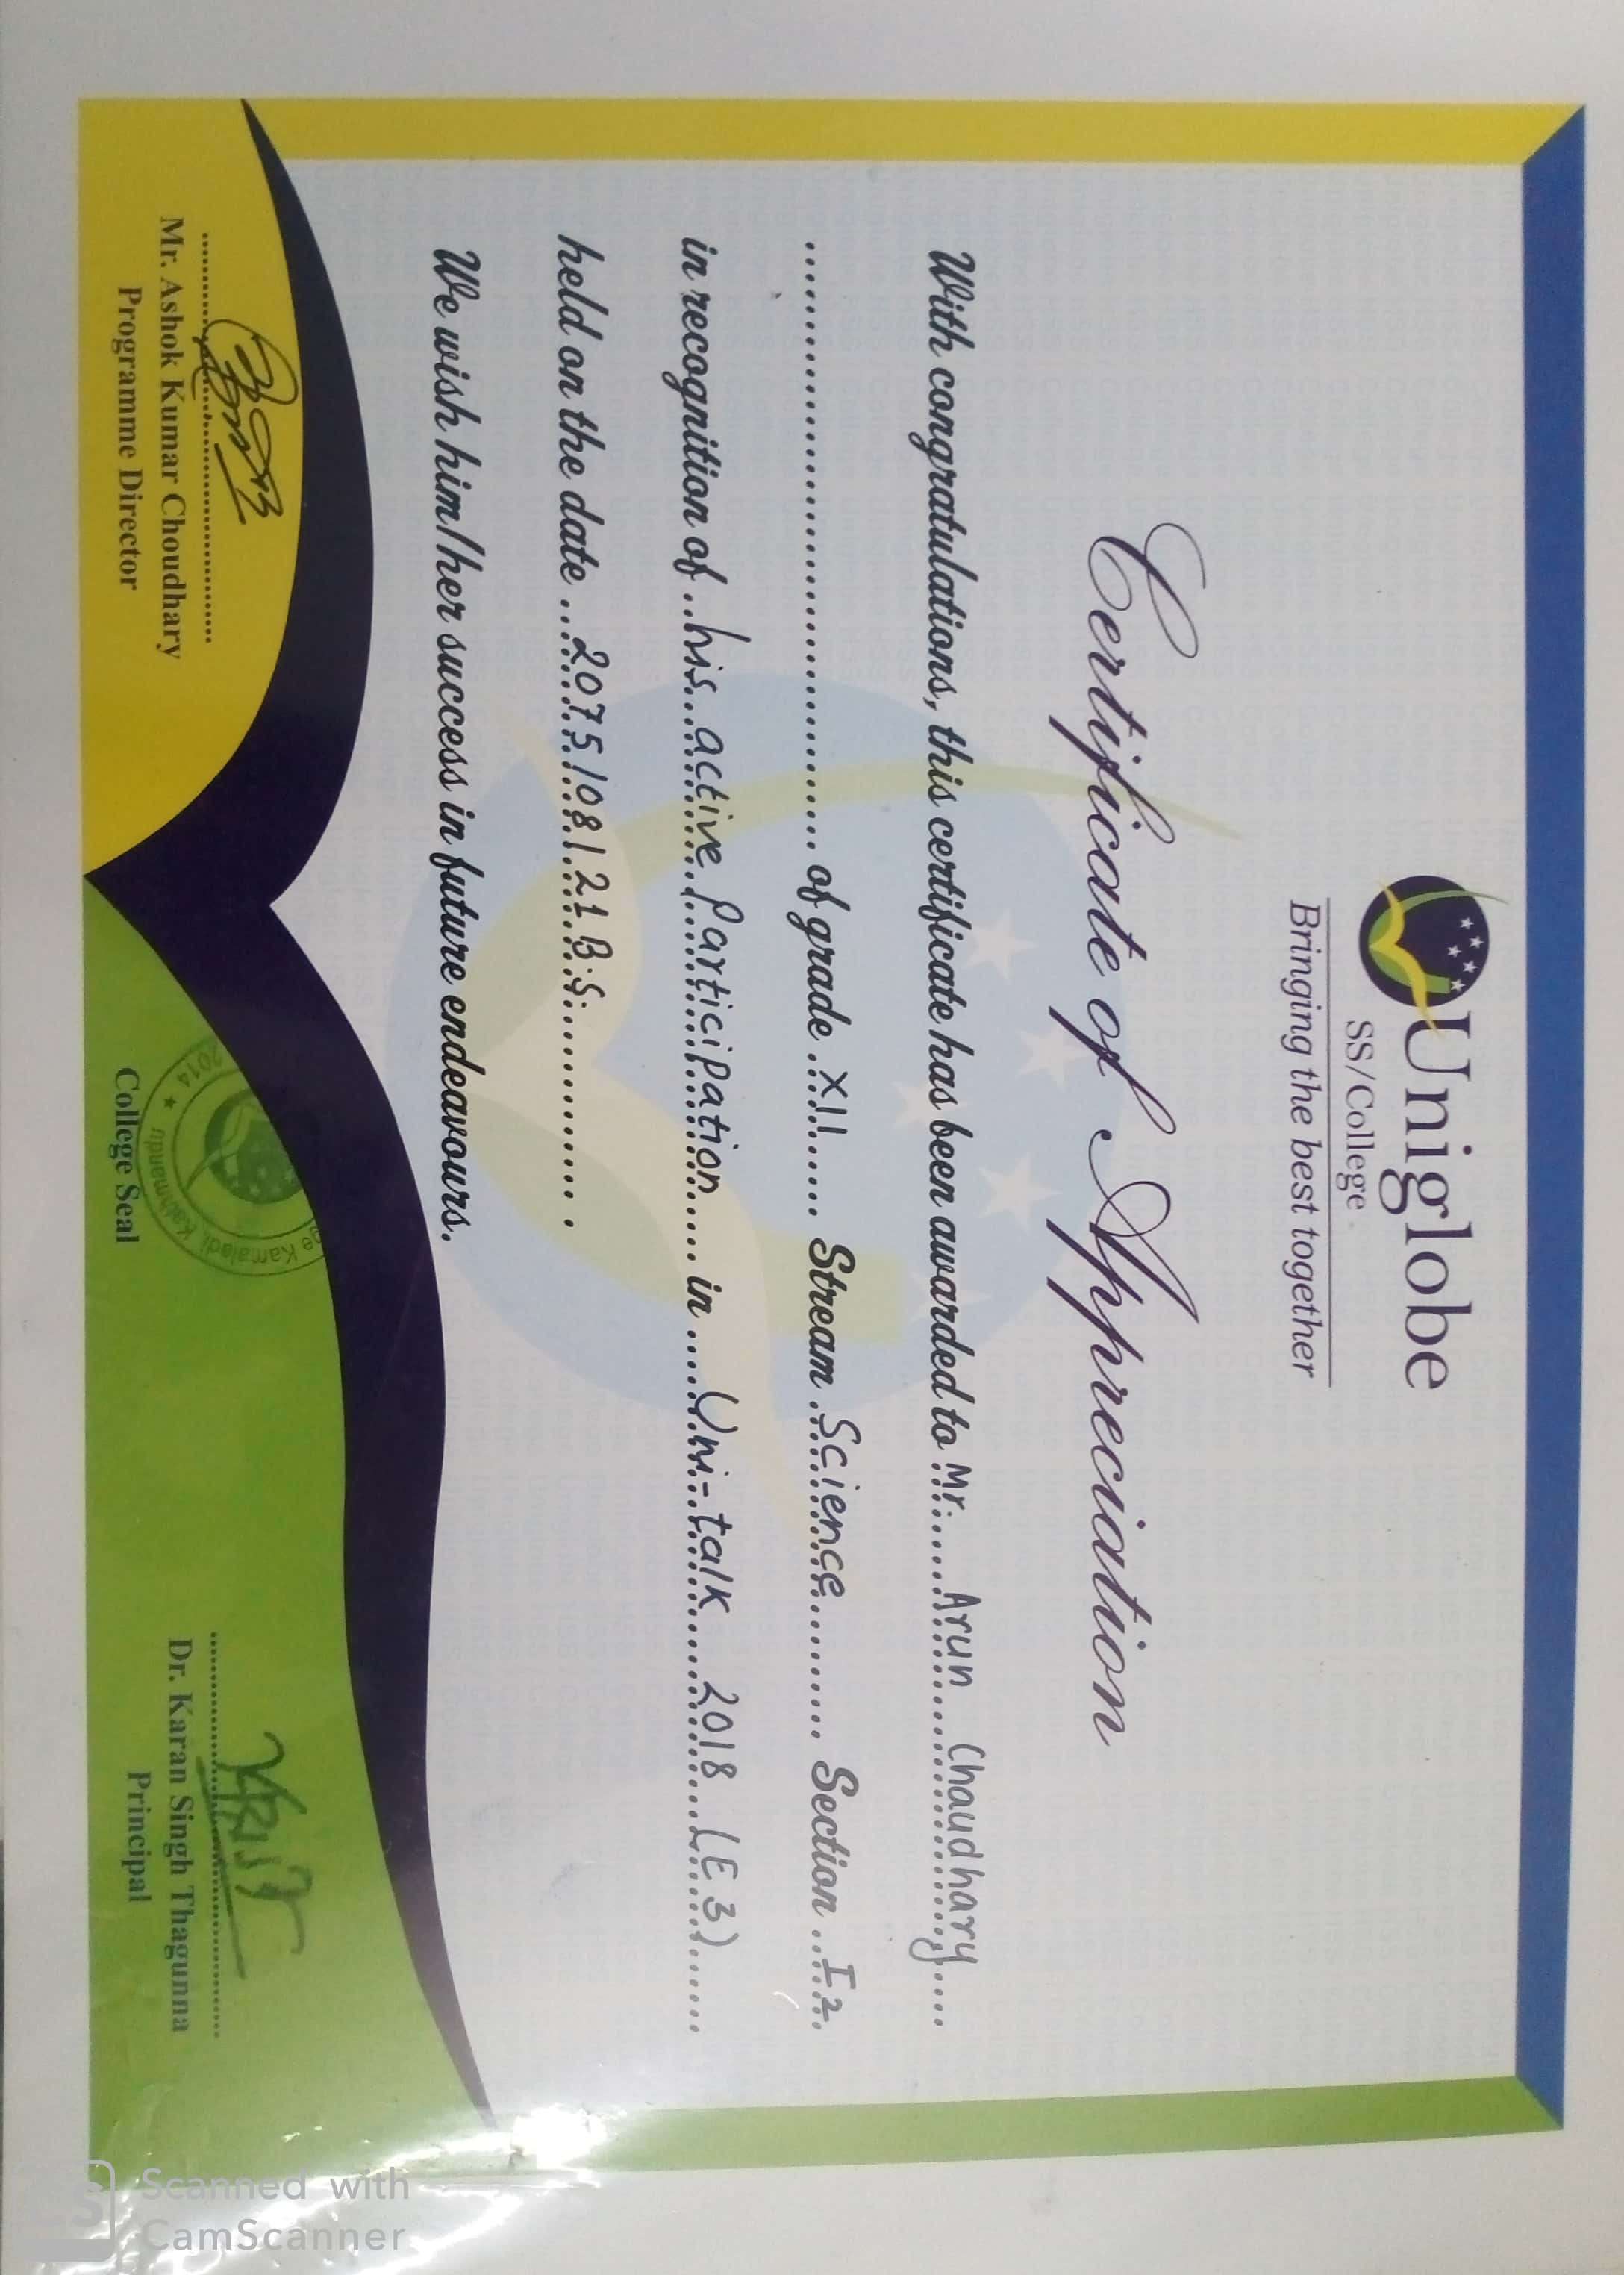 Uniglobe
SS/College
Bringing the best together
Certificate of Appreciation
With congratulations, this certificate has been awarded to Mr. Arun Chaudhary
of grade XII Stream Science Section I2
in recognition of his active Participation in Uni-talk 2018 (E3)
held on the date 2075/08/21 B.S.
We wish him/her success in future endeavours.
Mr. Ashok Kumar Choudhary
Programme Director
Kamaladi, Kathmandu
2014
College Seal
Dr. Karan Singh Thagunna
Principal
Scanned with
CamScanner